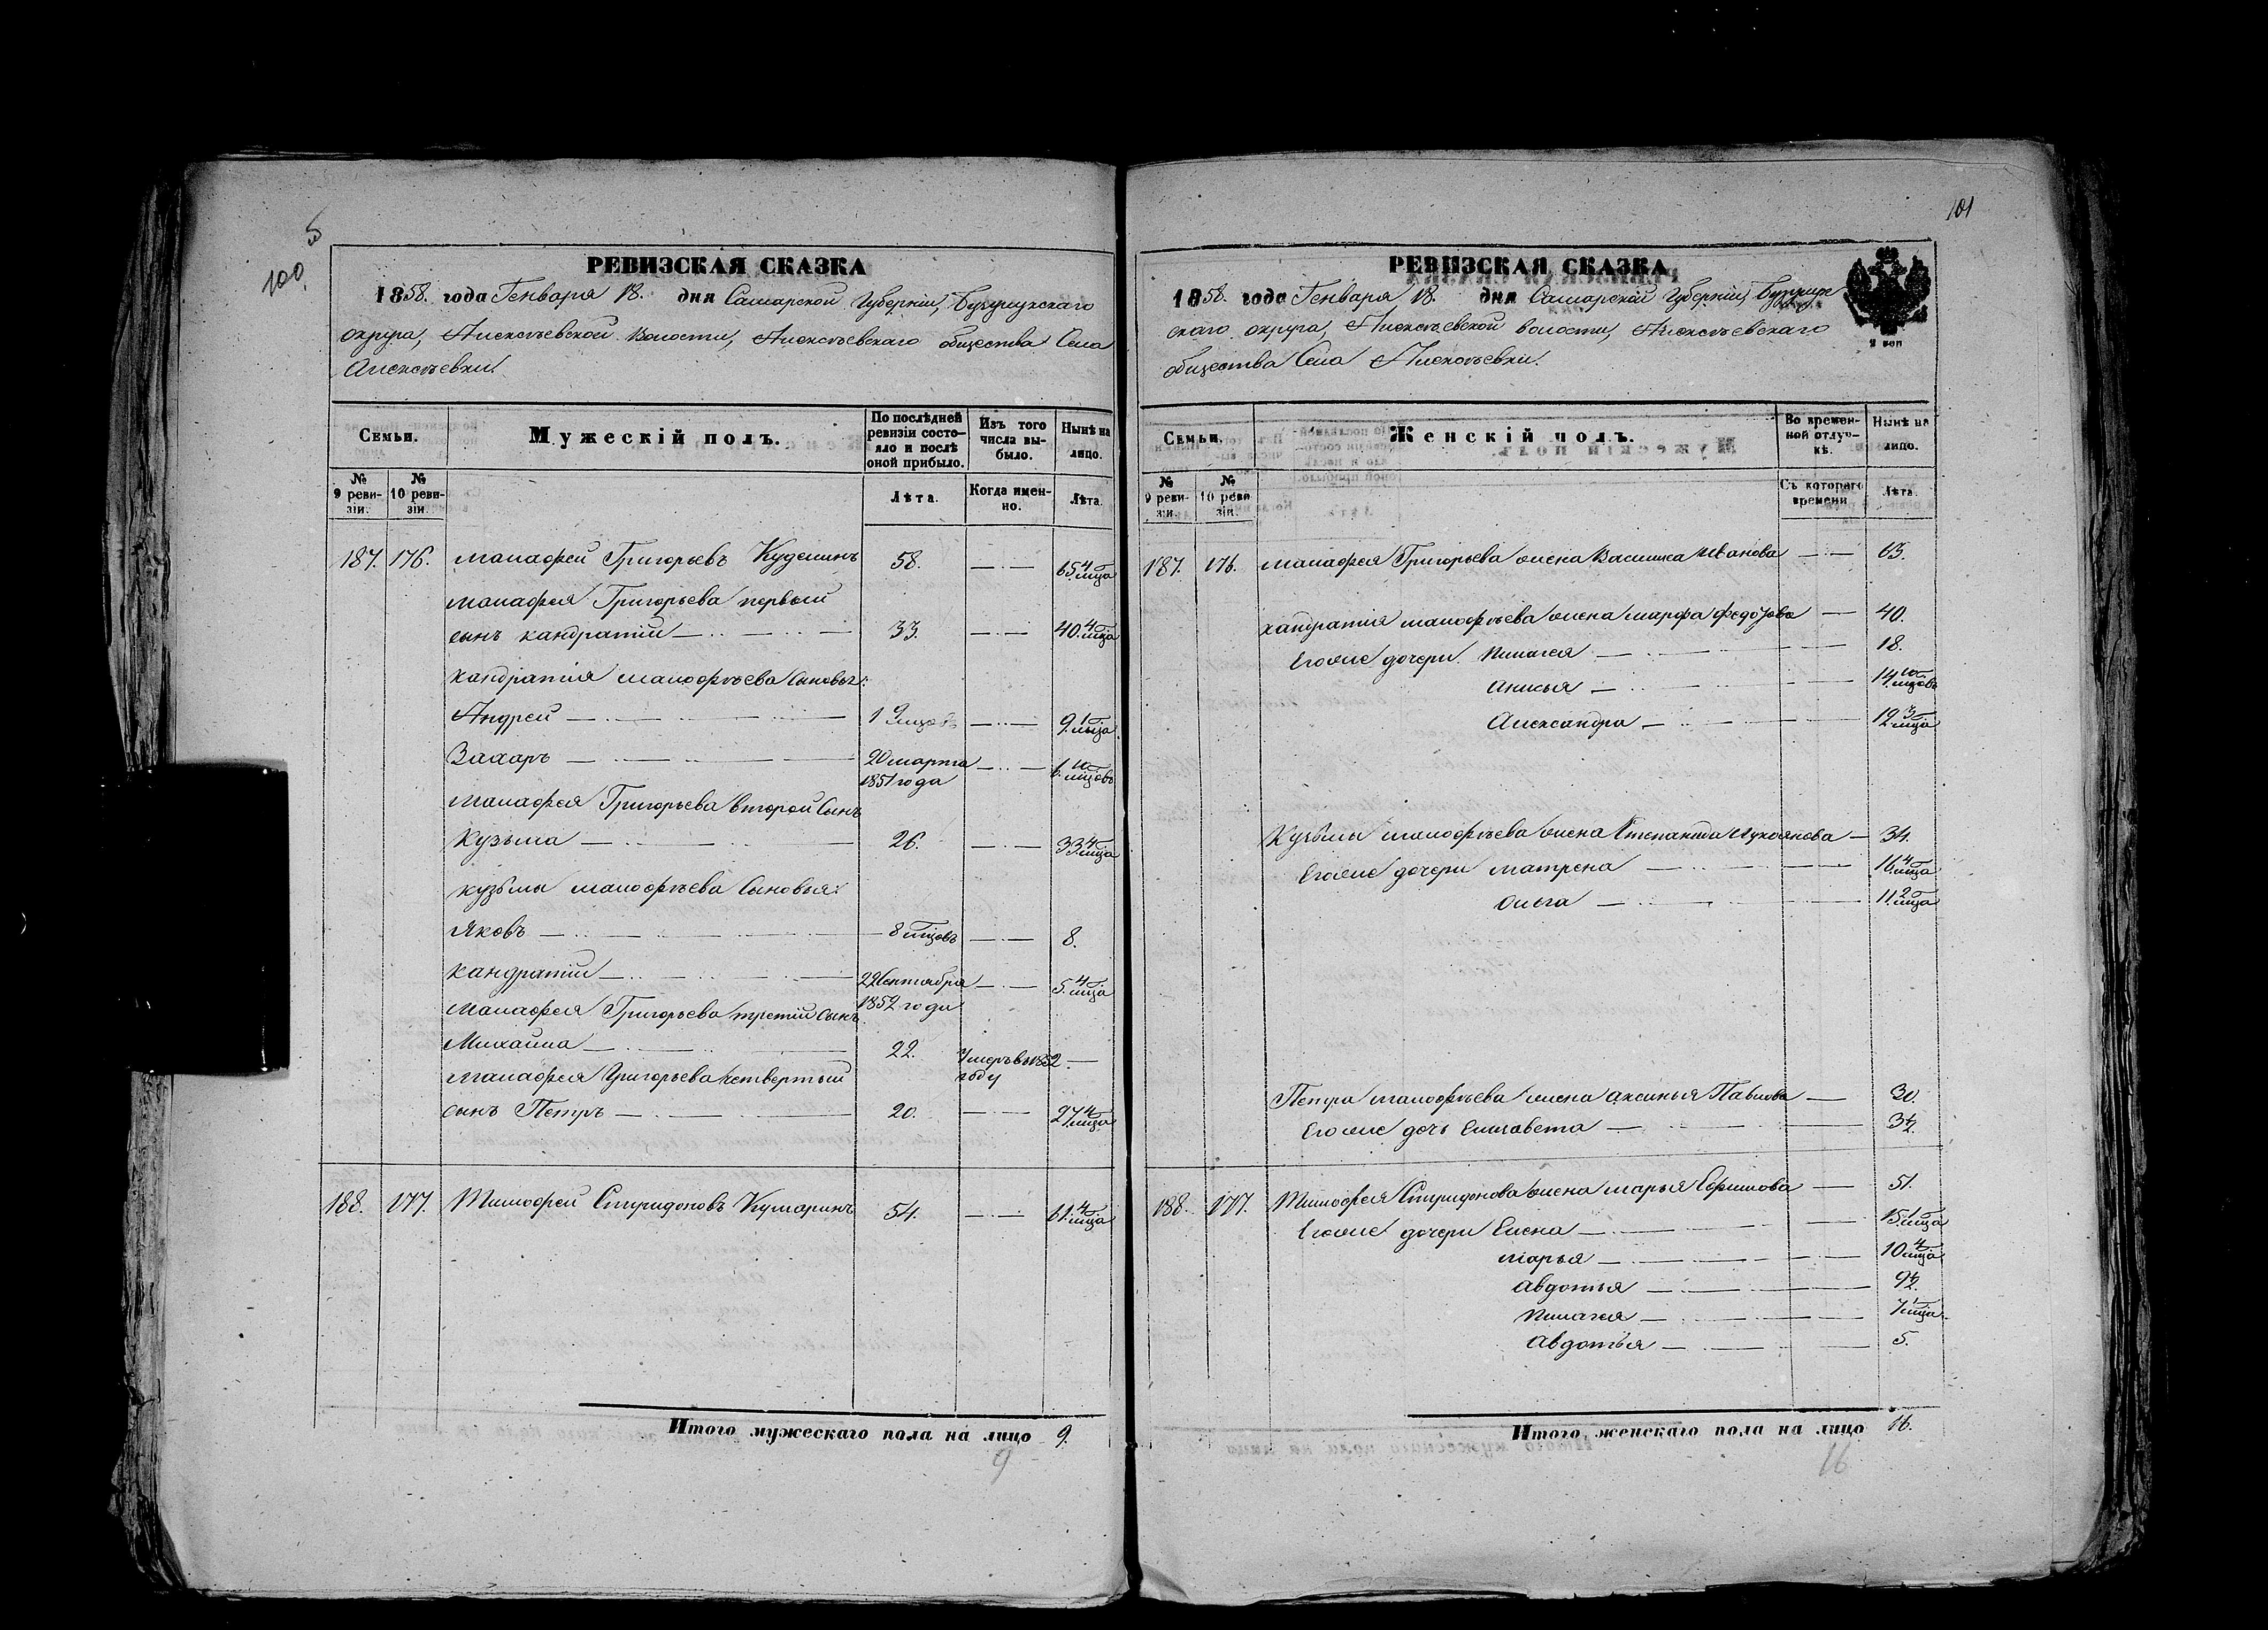 5
100.
РЕВИЗСКАЯ СКАЗКА
1858. года Генваря 18. дня Самарской Губерніи, Бузулукскаго
округа, Алексѣевской Волости, Алексѣевскаго общества Села
Алексѣевки.
Семьи.
Мужескій полъ.
По послѣдней ревизіи состояло и послѣ оной прибыло.
Изъ того числа выбыло.
Нынѣ на лицо.
№ 9 ревизіи.
№ 10 ревизіи.
Лѣта.
Когда именно.
Лѣта.
187. 176. Малафей Григорьевъ 58. 65 4 мца
Малафея Григорьева первый
сынъ Кандратій 33. 40. 4 мца
Кандратія Малофѣева Сыновья:
Андрей 1 9 мцовъ 9. 1 мца
Захаръ 20 марта 1851 года 6. 10 мцовъ
Малафея Григорьева второй Сынъ
Кузьма 26. 33. 4 мца
Кузьмы Малофѣева Сыновья:
Яковъ 8 мцовъ 8.
Кандратій 22 Сентября 1852 года 5. 4 мца
Малафея Григорьева третій Сынъ
Михайла 22. Умеръ въ 1852 году
Малафея Григорьева четвертый
сынъ Петръ 20. 27. 4 мца
188. 177. Тимофей Спиридоновъ Кумаринъ 54. 61. 4 мца
Итого мужескаго пола на лицо 9.
9
101
РЕВИЗСКАЯ СКАЗКА
1858. года Генваря 18. дня Самарской Губерніи, Бузулук
скаго округа, Алексѣевской волости, Алексѣевскаго
общества Села Алексѣевки.
Семьи.
Женскій полъ.
Во временной отлучкѣ.
Нынѣ на лицо.
№ 9 ревизіи.
№ 10 ревизіи.
Съ котораго времени
Лѣта.
187. 176. Малафея Григорьева жена Василиса Иванова 63.
Кандратія Малофѣева жена Марфа Федотова 40.
Его же дочери Пилагея 18.
Анисья 14 10 мцовъ
Александра 12 3 мца
Кузьмы Малофѣева жена Степанида Лукоянова 34.
Его же дочери Матрена 16. 4 мца
Ольга 11. 2 мца
Петра Малофѣева жена Аксинья Павлова 30.
Его же дочь Елизавета 3 ½.
188. 177. Тимофея Спиридонова жена Марья Ефимова 51.
Его же дочери Елена 15. 1 мца
Марья 10 4 мца
Авдотья 9 ½.
Пилагея 7 1 мца
Авдотья 5.
Итого женскаго пола на лицо 16.
16